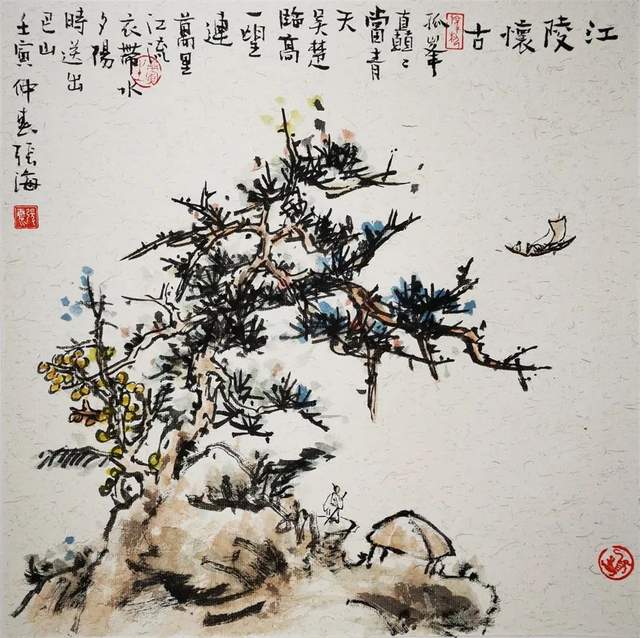 江陵懷古
孤峯
直顛〻
當青
天
吳楚
臨高
一望
連
萬里
江流
衣帶水
夕陽
時送出
巴山
壬寅仲春張海